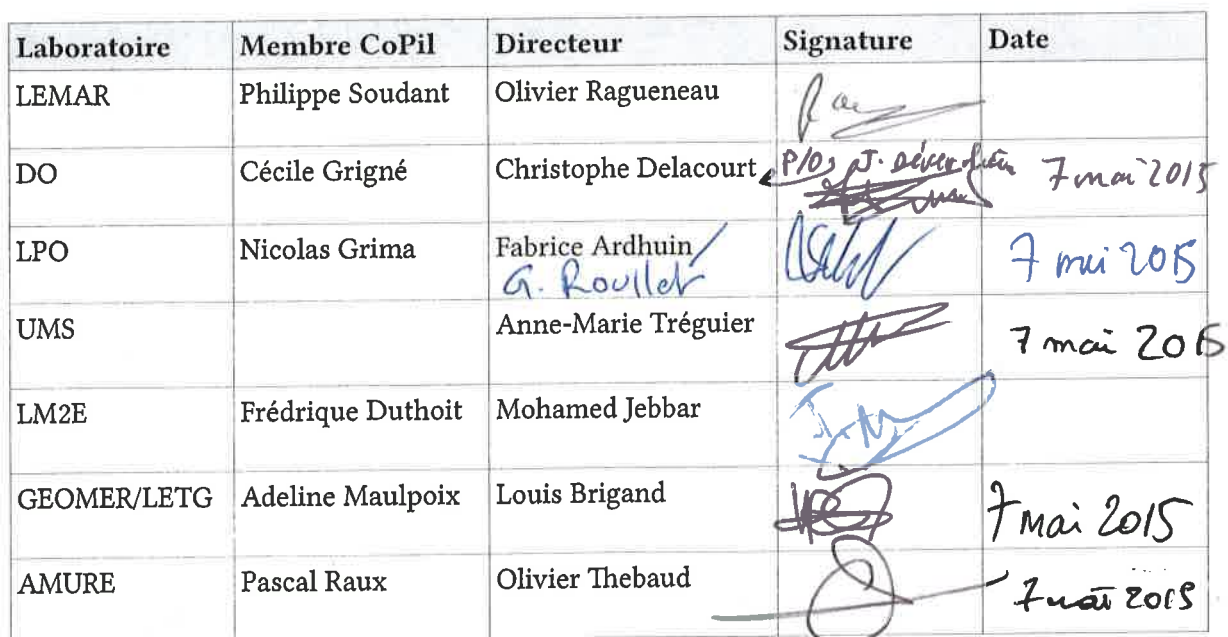 Laboratoire Membre CoPil Directeur Signature Date
LEMAR Philippe Soudant Olivier Ragueneau
DO Cécile Grigné Christophe Delacourt P/O, J. 7 mai 2015
LPO Nicolas Grima Fabrice Ardhuin 7 mai 2015
G. Roullet
UMS Anne-Marie Tréguier 7 mai 2015
LM2E Frédrique Duthoit Mohamed Jebbar
GEOMER/LETG Adeline Maulpoix Louis Brigand 7 Mai 2015
AMURE Pascal Raux Olivier Thebaud 7 mai 2015